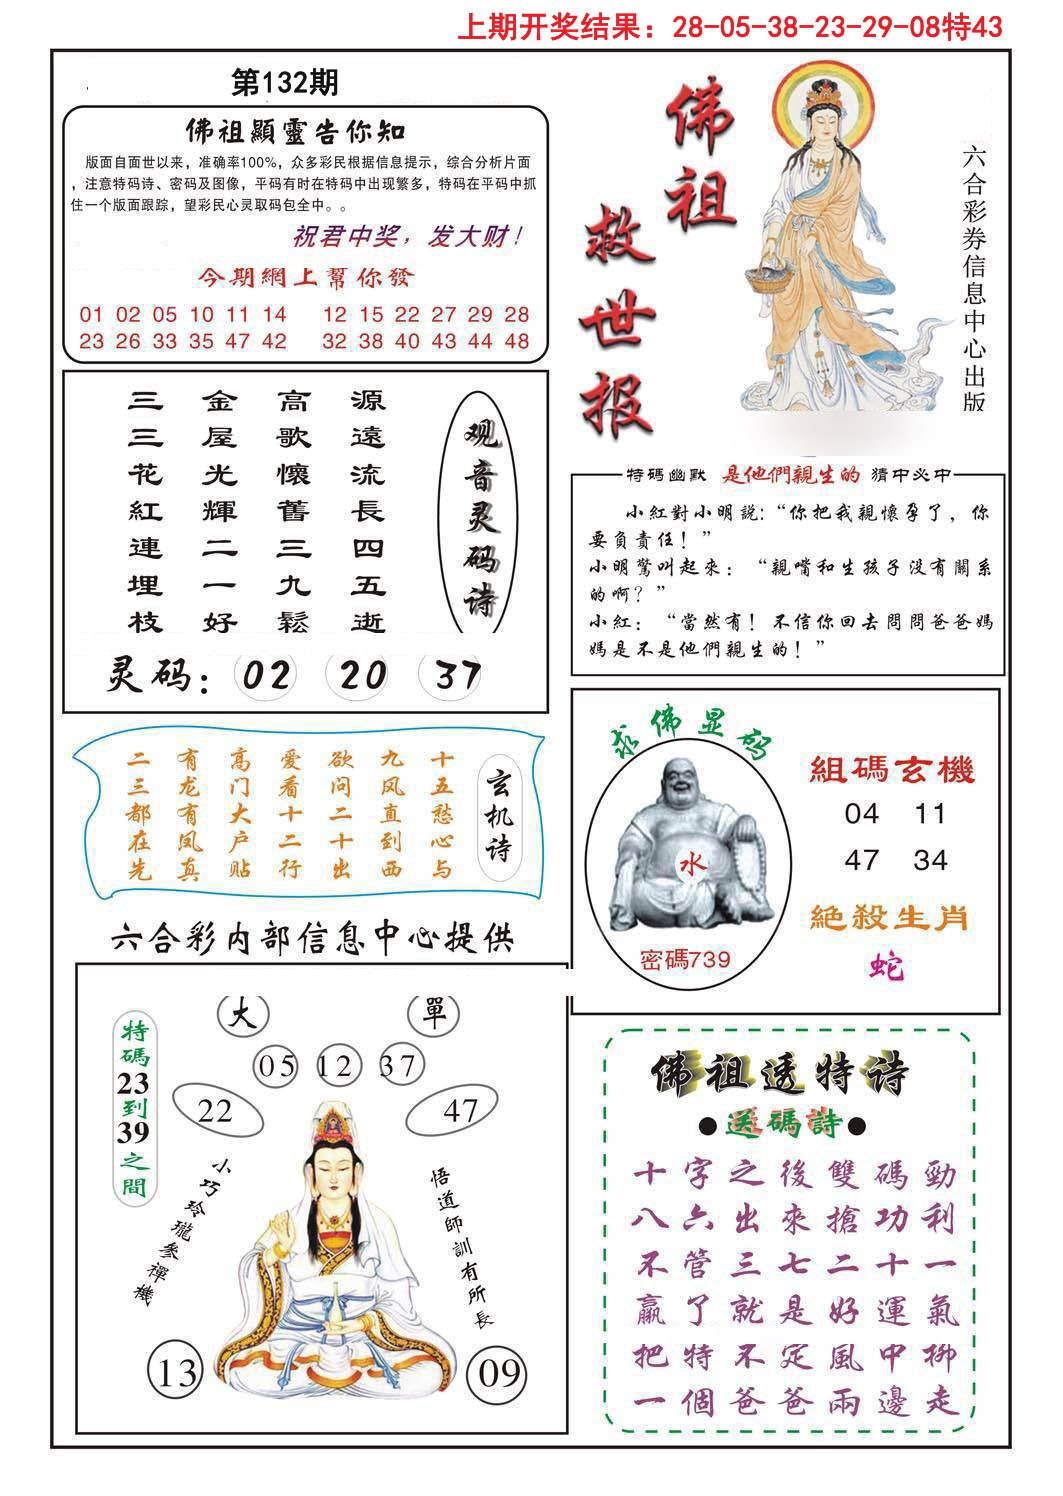 上期开奖结果：28-05-38-23-29-08特43
第132期
佛祖顯靈告你知
版面自面世以来，准确率100%，众多彩民根据信息提示，综合分析片面
，注意特码诗、密码及图像，平码有时在特码中出现繁多，特码在平码中抓
住一个版面跟踪，望彩民心灵取码包全中。。
祝君中奖，发大财！
今期網上幫你發
01 02 05 10 11 14 12 15 22 27 29 28
23 26 33 35 47 42 32 38 40 43 44 48
佛祖救世报
六合彩券信息中心出版
观音灵码诗
源遠流長四五逝
高歌懷舊三九鬆
金屋光輝二一好
三三花紅連埋枝
灵码：02 20 37
特碼幽默 是他們親生的 猜中必中
小紅對小明說：“你把我親懷孕了，你
要負責任！”
小明驚叫起來：“親嘴和生孩子没有關系
的啊？”
小紅：“當然有！不信你回去問問爸爸媽
媽是不是他們親生的！”
玄机诗
十五愁心与
九风直到西
欲问二十出
爱看十二行
高门大户贴
有龙有凤真
二三都在先
求佛显码
水
密碼739
組碼玄機
04 11
47 34
絕殺生肖
蛇
六合彩内部信息中心提供
特碼23到39之間
大 單
05 12 37
22 47
小巧玲瓏參禪機
悟道師訓有所長
13 09
佛祖透特诗
●送碼詩●
十字之後雙碼勁
八六出來搶功利
不管三七二十一
贏了就是好運氣
把特不定風中柳
一個爸爸兩邊走